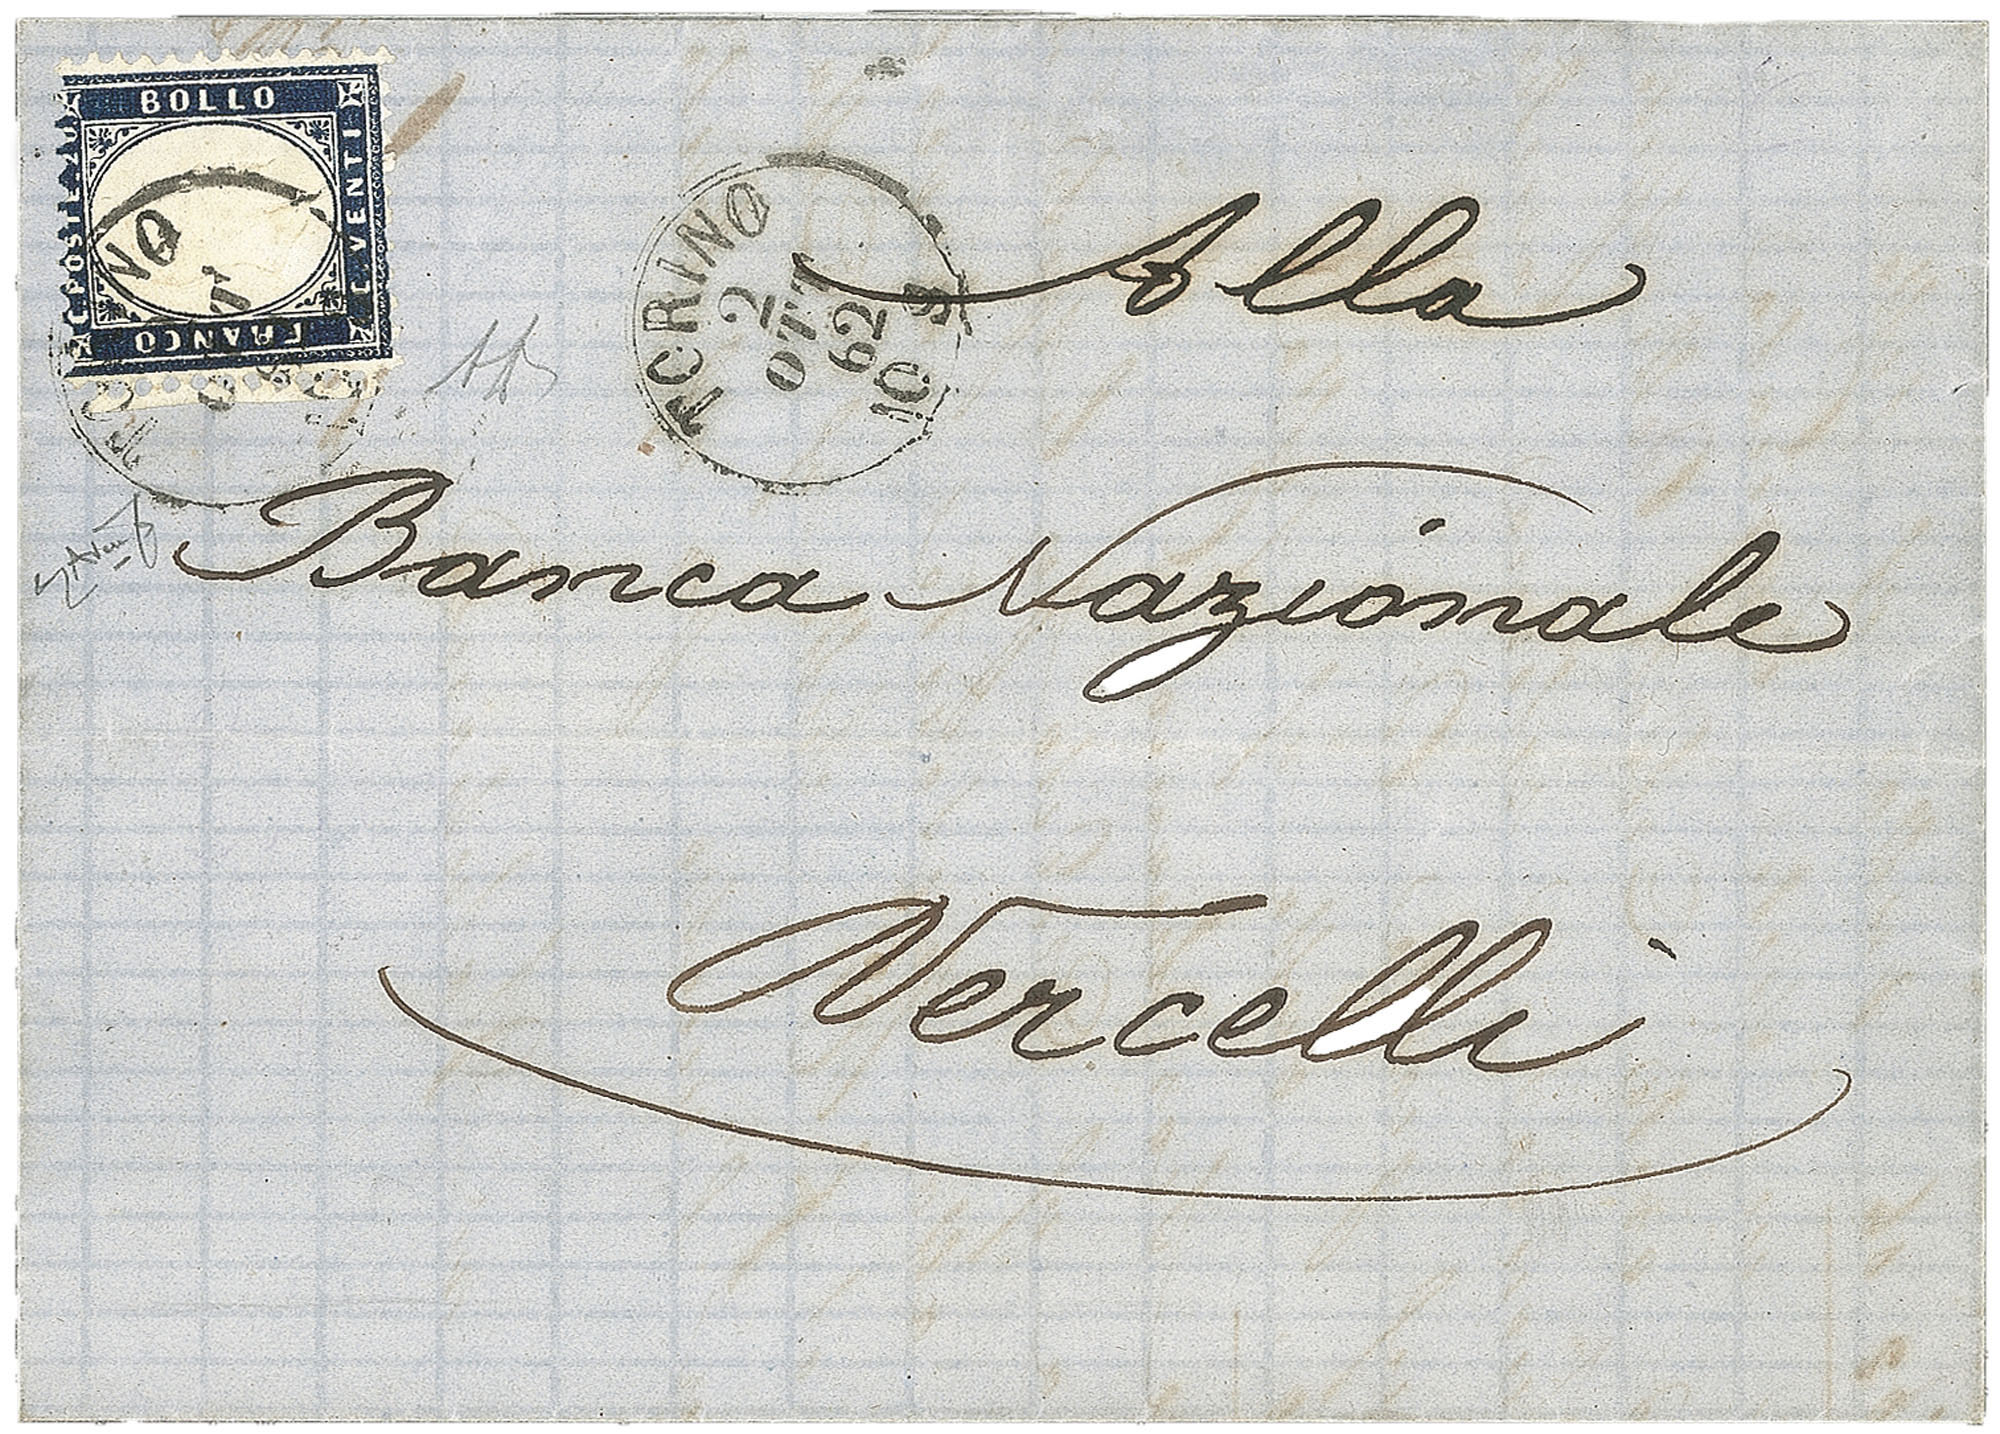 BOLLO
C. POSTE
C. VENTI
FRANCO
NO
TORINO
2
OTT
62
10 S
Alla
Banca Nazionale
Vercelli